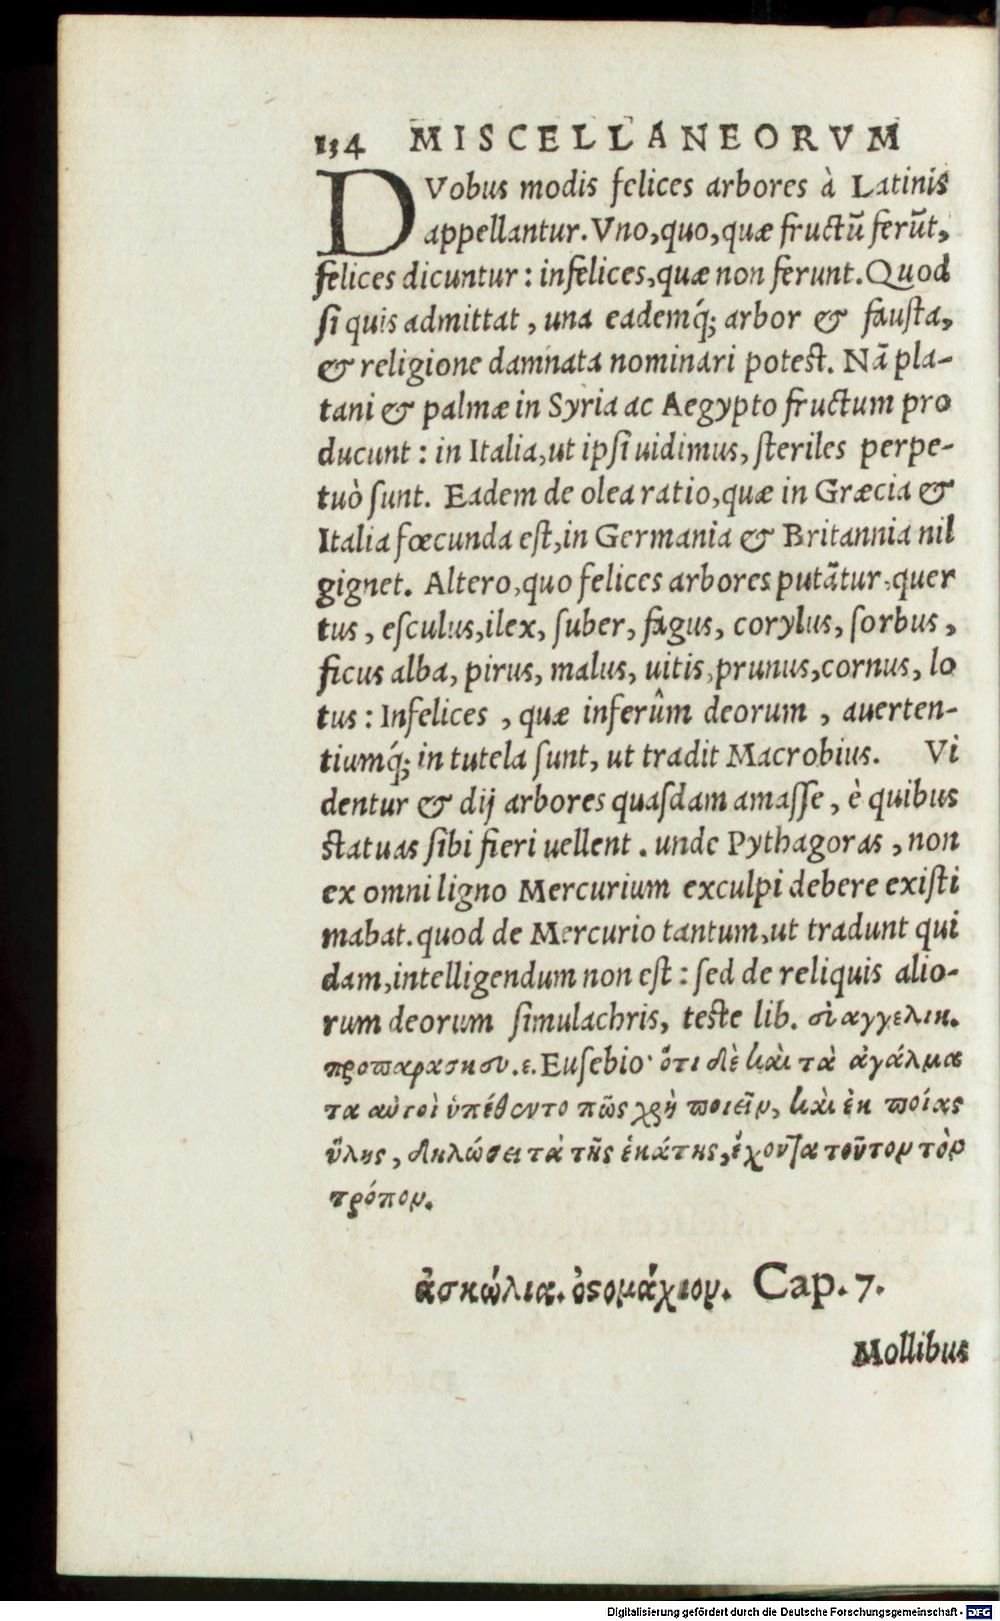 134 MISCELLANEORVM
DVobus modis felices arbores à Latinis
appellantur. Vno, quo, quæ fructũ ferũt,
felices dicuntur: infelices, quæ non ferunt. Quod
ſi quis admittat, una eademq́; arbor & fauſta,
& religione damnata nominari poteſt. Nã pla-
tani & palmæ in Syria ac Aegypto fructum pro
ducunt: in Italia, ut ipſi uidimus, ſteriles perpe-
tuò ſunt. Eadem de olea ratio, quæ in Græcia &
Italia fœcunda eſt, in Germania & Britannia nil
gignet. Altero, quo felices arbores putãtur, quer
tus, eſculus, ilex, ſuber, fagus, corylus, ſorbus,
ficus alba, pirus, malus, uitis, prunus, cornus, lo
tus: Infelices, quæ inferûm deorum, auerten-
tiumq́; in tutela ſunt, ut tradit Macrobius. Vi
dentur & dij arbores quaſdam amaſſe, è quibus
ſtatuas ſibi fieri uellent. unde Pythagoras, non
ex omni ligno Mercurium exculpi debere exiſti
mabat. quod de Mercurio tantum, ut tradunt qui
dam, intelligendum non eſt: ſed de reliquis alio-
rum deorum ſimulachris, teſte lib. αγγελικ.
προπαρασκευ. ε. Euſebio· ὅτι δὲ καὶ τὰ ἀγάλμα
τα αὐτοὶ ὑπέθεντο πῶς χρὴ ποιεῖν, καὶ ἐκ ποίας
ὕλης, δηλώσει τὰ τῆς ἑκάτης, ἔχοντα τοῦτον τὸν
τρόπον.
ἀσκώλια. ὀςομάχιον. Cap. 7.
Mollibus
Digitalisierung gefördert durch die Deutsche Forschungsgemeinschaft - DFG